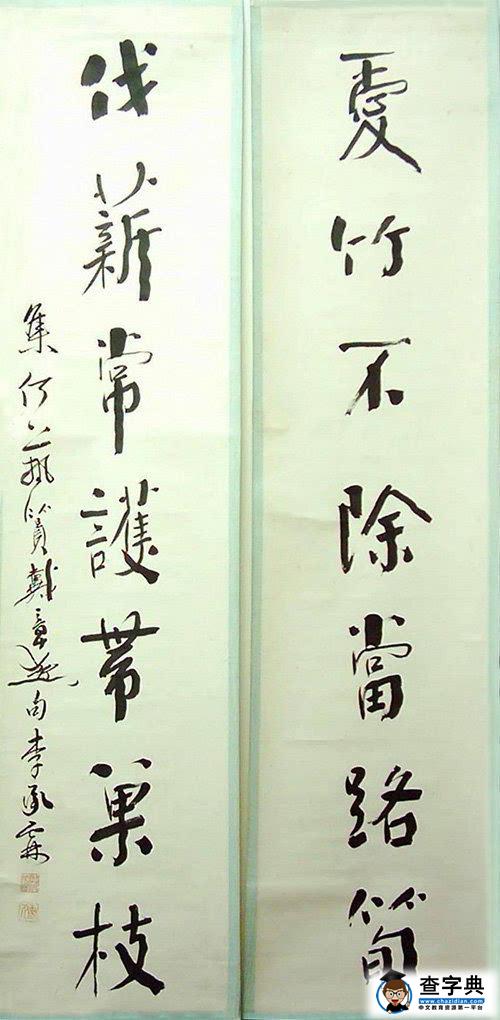 愛竹不除當路筍
伐薪常護帶巢枝
集戴句李承霖
查字典
www.chazidian.com
中文教育资源第一平台